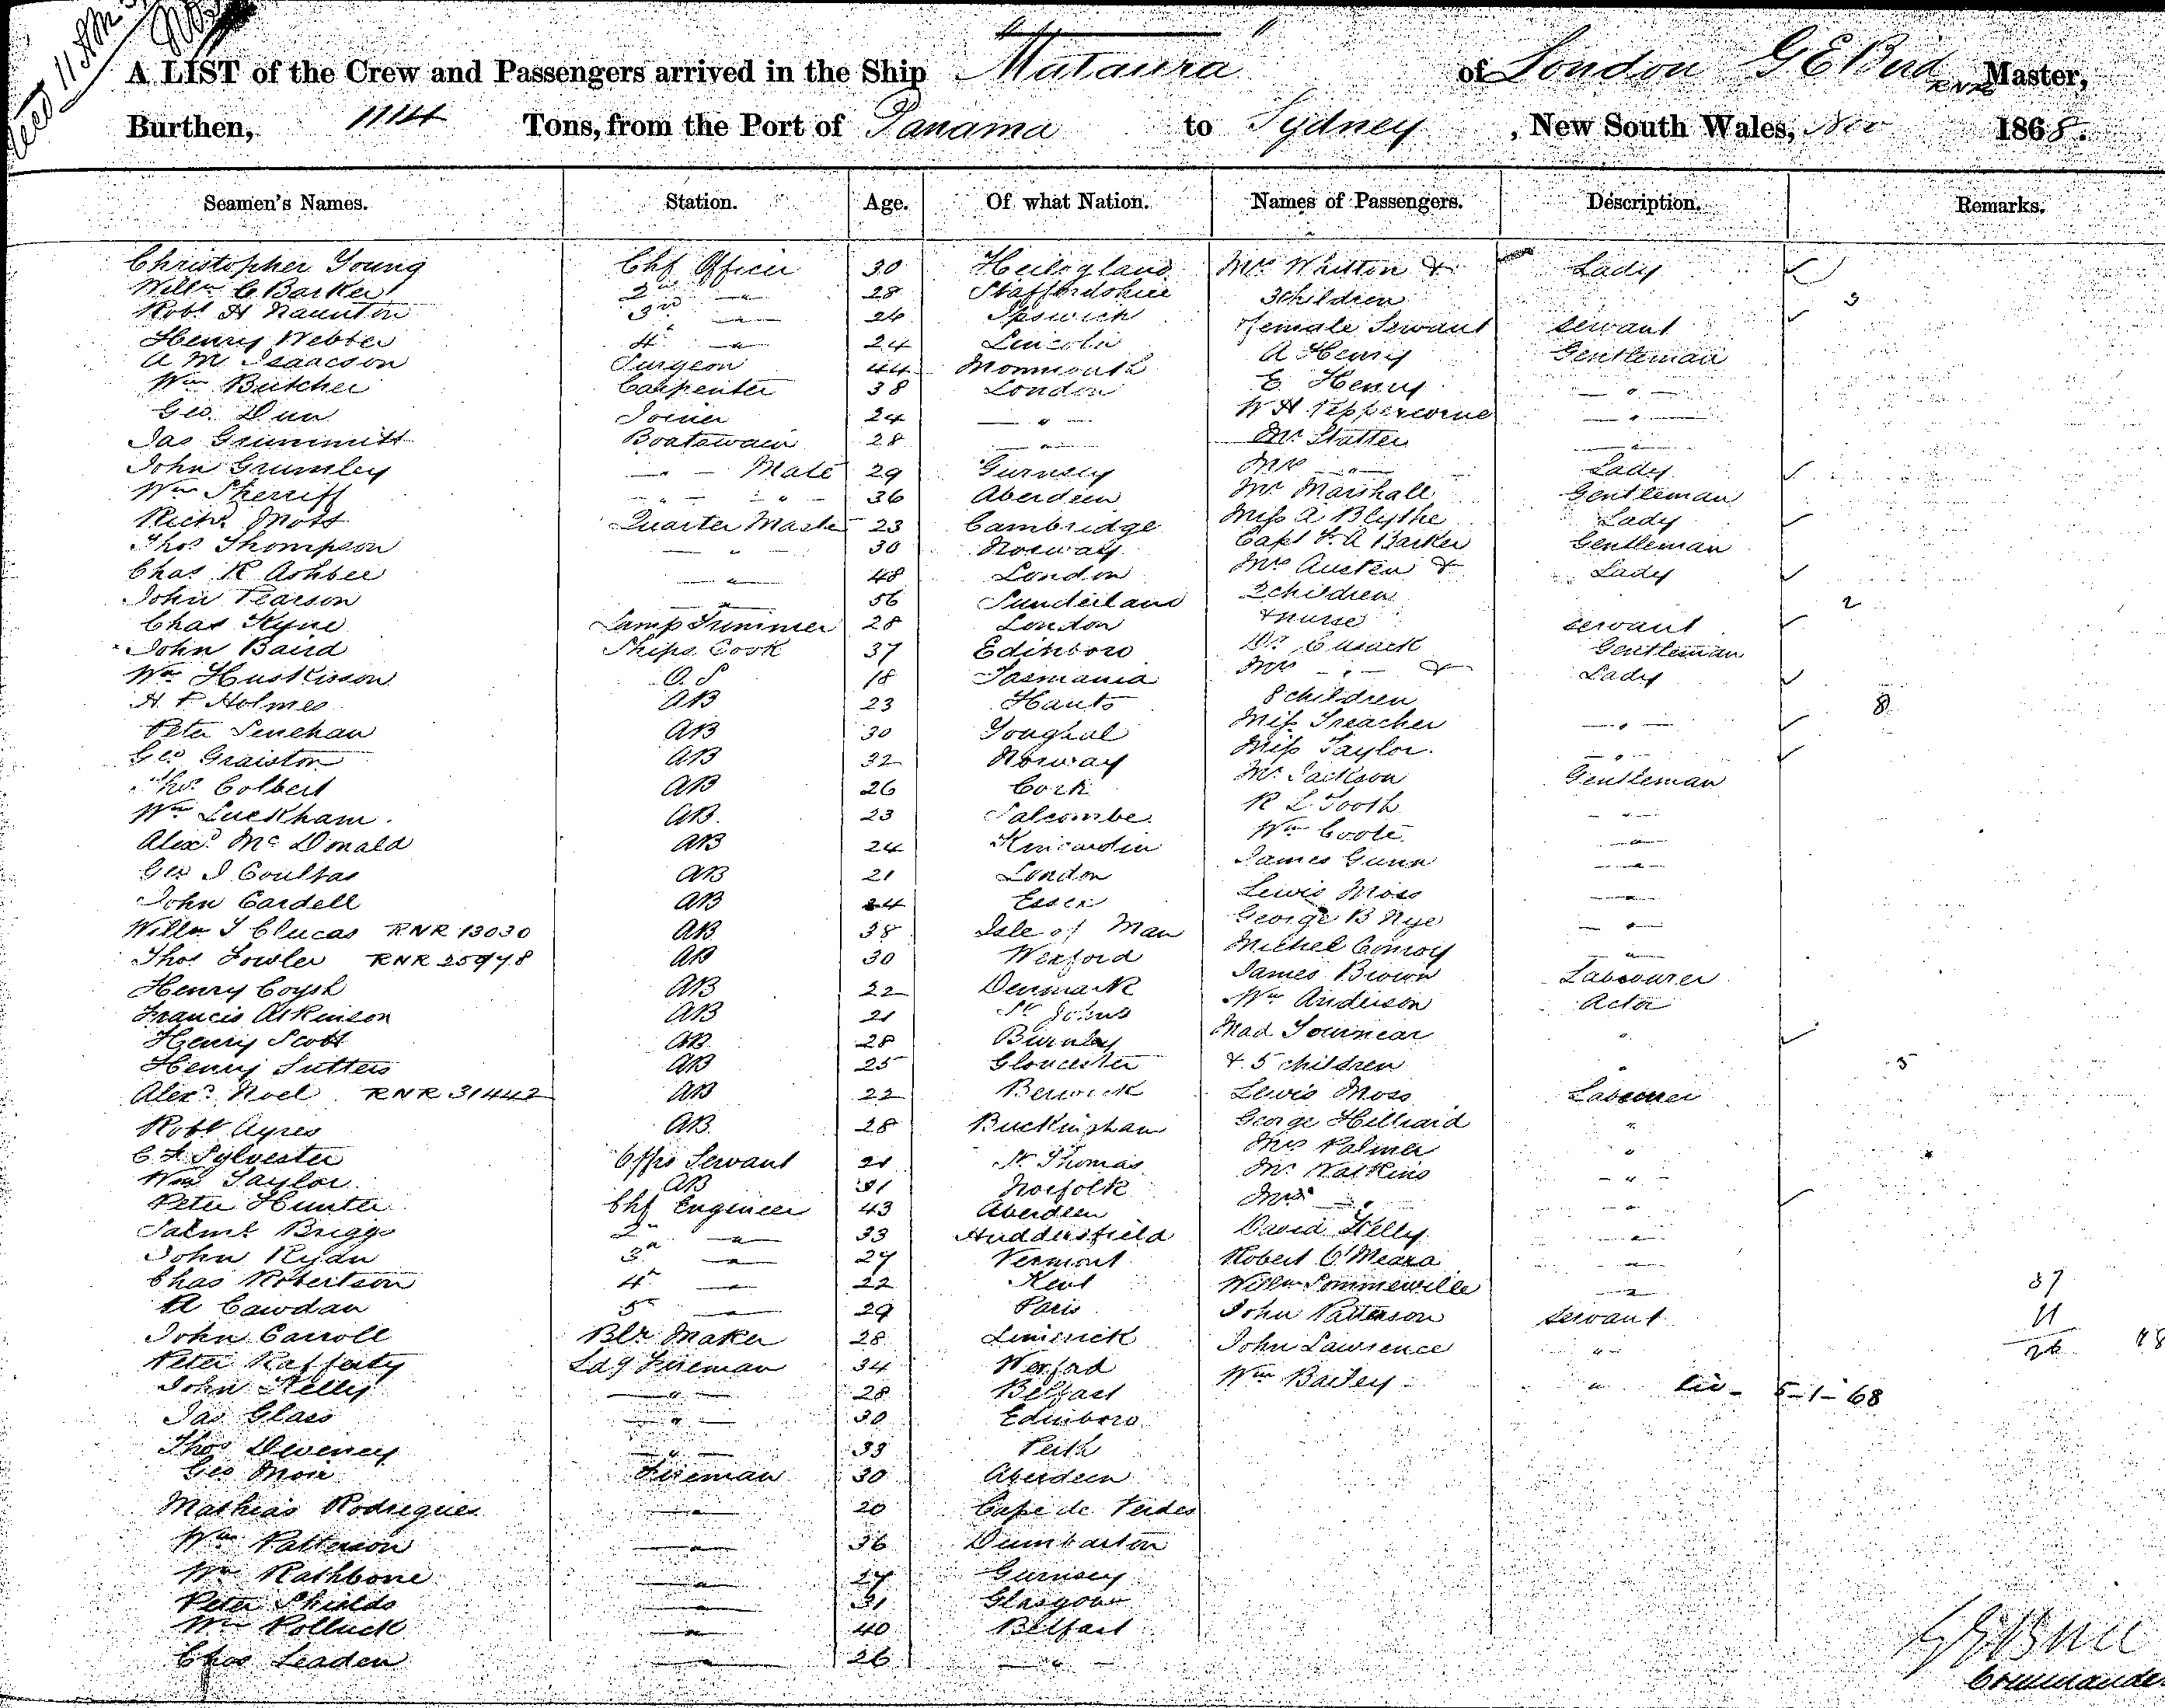 "Mataura"
A LIST of the Crew and Passengers arrived in the Ship Mataura of London G E Bird RNR Master,
Burthen, 1114 Tons, from the Port of Panama to Sydney, New South Wales, Nov 1868.
Seamen's Names. Station. Age. Of what Nation. Names of Passengers. Description. Remarks.
Christopher Young Chf Officer 30 Heiligland Mrs Whitton & Lady
Willm C Barker 2nd " 28 Staffordshire 3 children 3
Robt H Naunton 3rd " 26 Ipswich Female Servant servant
Henry Webber 4 " 24 Lincoln A Henry Gentleman
A M Isaacson Surgeon 44 Monmouth E Henry "
Wm Butcher Carpenter 38 London W H Peppercorne "
Geo. Dun Joiner 24 " Mr Statter "
Jas Grimmitt Boatswain 28 " Mrs " Lady
John Grumley " Mate 29 Gurnsey Mr Marshall Gentleman
Wm Sherriff " " 36 Aberdeen Miss A Blythe Lady
Richd Mott Quarter Master 23 Cambridge Capt F. A Barker Gentleman
Thos Thompson " 30 Norway Mrs Austen & Lady
Chas R Ashbee " 48 London 2 children 2
John Pearson " 56 Sunderland & nurse servant
Chas Kyne Lamp Trimmer 28 London Dr Cusack Gentleman
John Baird Ships Cook 37 Edinboro Mrs " & Lady
Wm Huskisson O.S 18 Tasmania 8 children 8
H. F Holmes AB 23 Hants Miss Treacher "
Peter Lenehan AB 30 Youghal Miss Taylor. "
Geo Graiston AB 32 Norway Mr Jackson Gentleman
Thos. Colbert AB 26 Cork R L Tooth "
Wm Luckham. AB. 23 Salcombe. Wm Coote "
Alexr. McDonald AB 24 Kincardin James Gunn "
Geo J Coultas AB 21 London Lewis Moss "
John Cardell AB 24 Essex George B Nye "
Willm J Clucas RNR 13030 AB 38 Isle of Man Michel Conroy "
Thos Fowler RNR 25978 AB 30 Wexford James Brown Labourer
Henry Coysh AB 22 Denmark Wm Anderson Actor
Francis Atkinson AB 21 St Johns Mad Tournear "
Henry Scott AB 28 Burnley & 5 children " 5
Henry Sutters AB 25 Gloucester Lewis Moss Labourer
Alexr. Noel RNR 31442 AB 22 Berwick George Hilliard "
Robt Ayres AB. 28 Buckingham Thos Palmer "
C A Sylvester Offrs Servant 21 St Thomas Mr Watkins "
Wm Taylor AB 31 Norfolk Mrs " "
Peter Hunter Chf Engineer 43 Aberdeen David Kelly "
Saml Briggs 2 " 33 Huddersfield Robert O'Meara "
John Ryan 3rd " 27 Vermont Willm Sommerville "
Chas Robertson 4 " 22 Kent John Patterson servant
A Cawdan 5 " 29 Paris John Lawrence "
John Carroll Blr Maker 28 Limerick Wm Bailey "
Peter Rafferty Ldg Fireman 34 Wexford
John Kelly " 28 Belfast 5-1-68
Jas Glass " 30 Edinboro
Thos Deveney " 33 Perth
Geo Moir Fireman 30 Aberdeen
Mathias Rodrigues " 20 Cape de Verdes
Wm Patterson " 36 Dumbarton
Wm Rathbone " 27 Gurnsey
Peter Shields " 31 Glasgow
Wm Polluck " 40 Belfast
Chas Leaden " 26 "
Commander